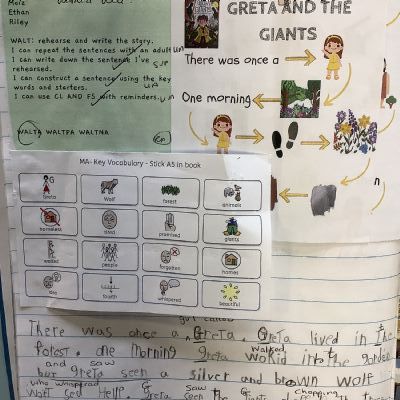 Moiz
Ethan
Riley
WALT: rehearse and write the story.
I can repeat the sentences with an adult
I can write down the sentence I've
rehearsed.
I can construct a sentence using the key
words and starters.
I can use CL and FS with reminders.
WALTA WALTPA WALTNA
GRETA AND THE
GIANTS
There was once a
One morning
n
MA- Key Vocabulary - Stick A5 in book
Greta Wolf forest animals
homeless promised giants
waited people forgotten homes
fourth whispered beautiful
There was once a Greta. Greta lived in the
forest. one morning Greta wokid walked into the garden
and saw
but greta seen a silver and brown wolf
who whisperd saw chopping
Wolf sed Help. Greta seen the